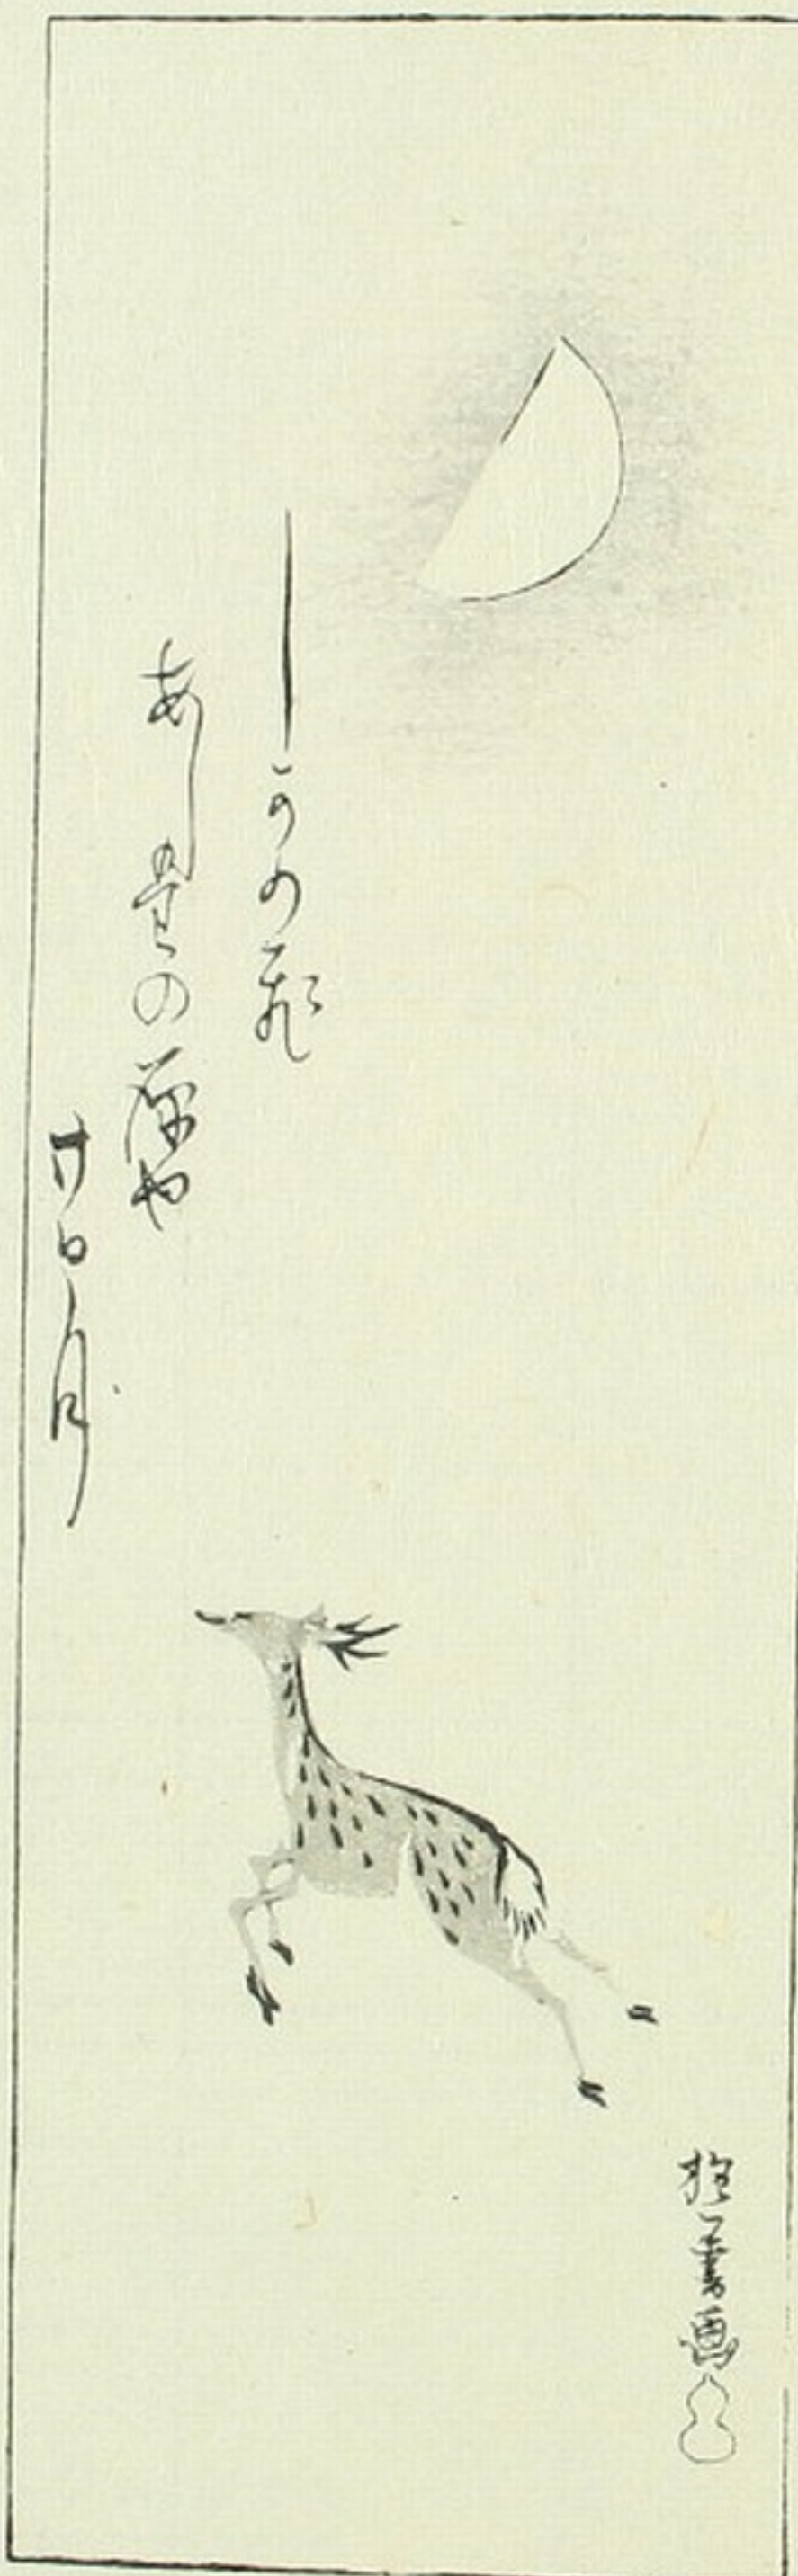 しかの飛
あしたの原や
廿日月
抱一書画